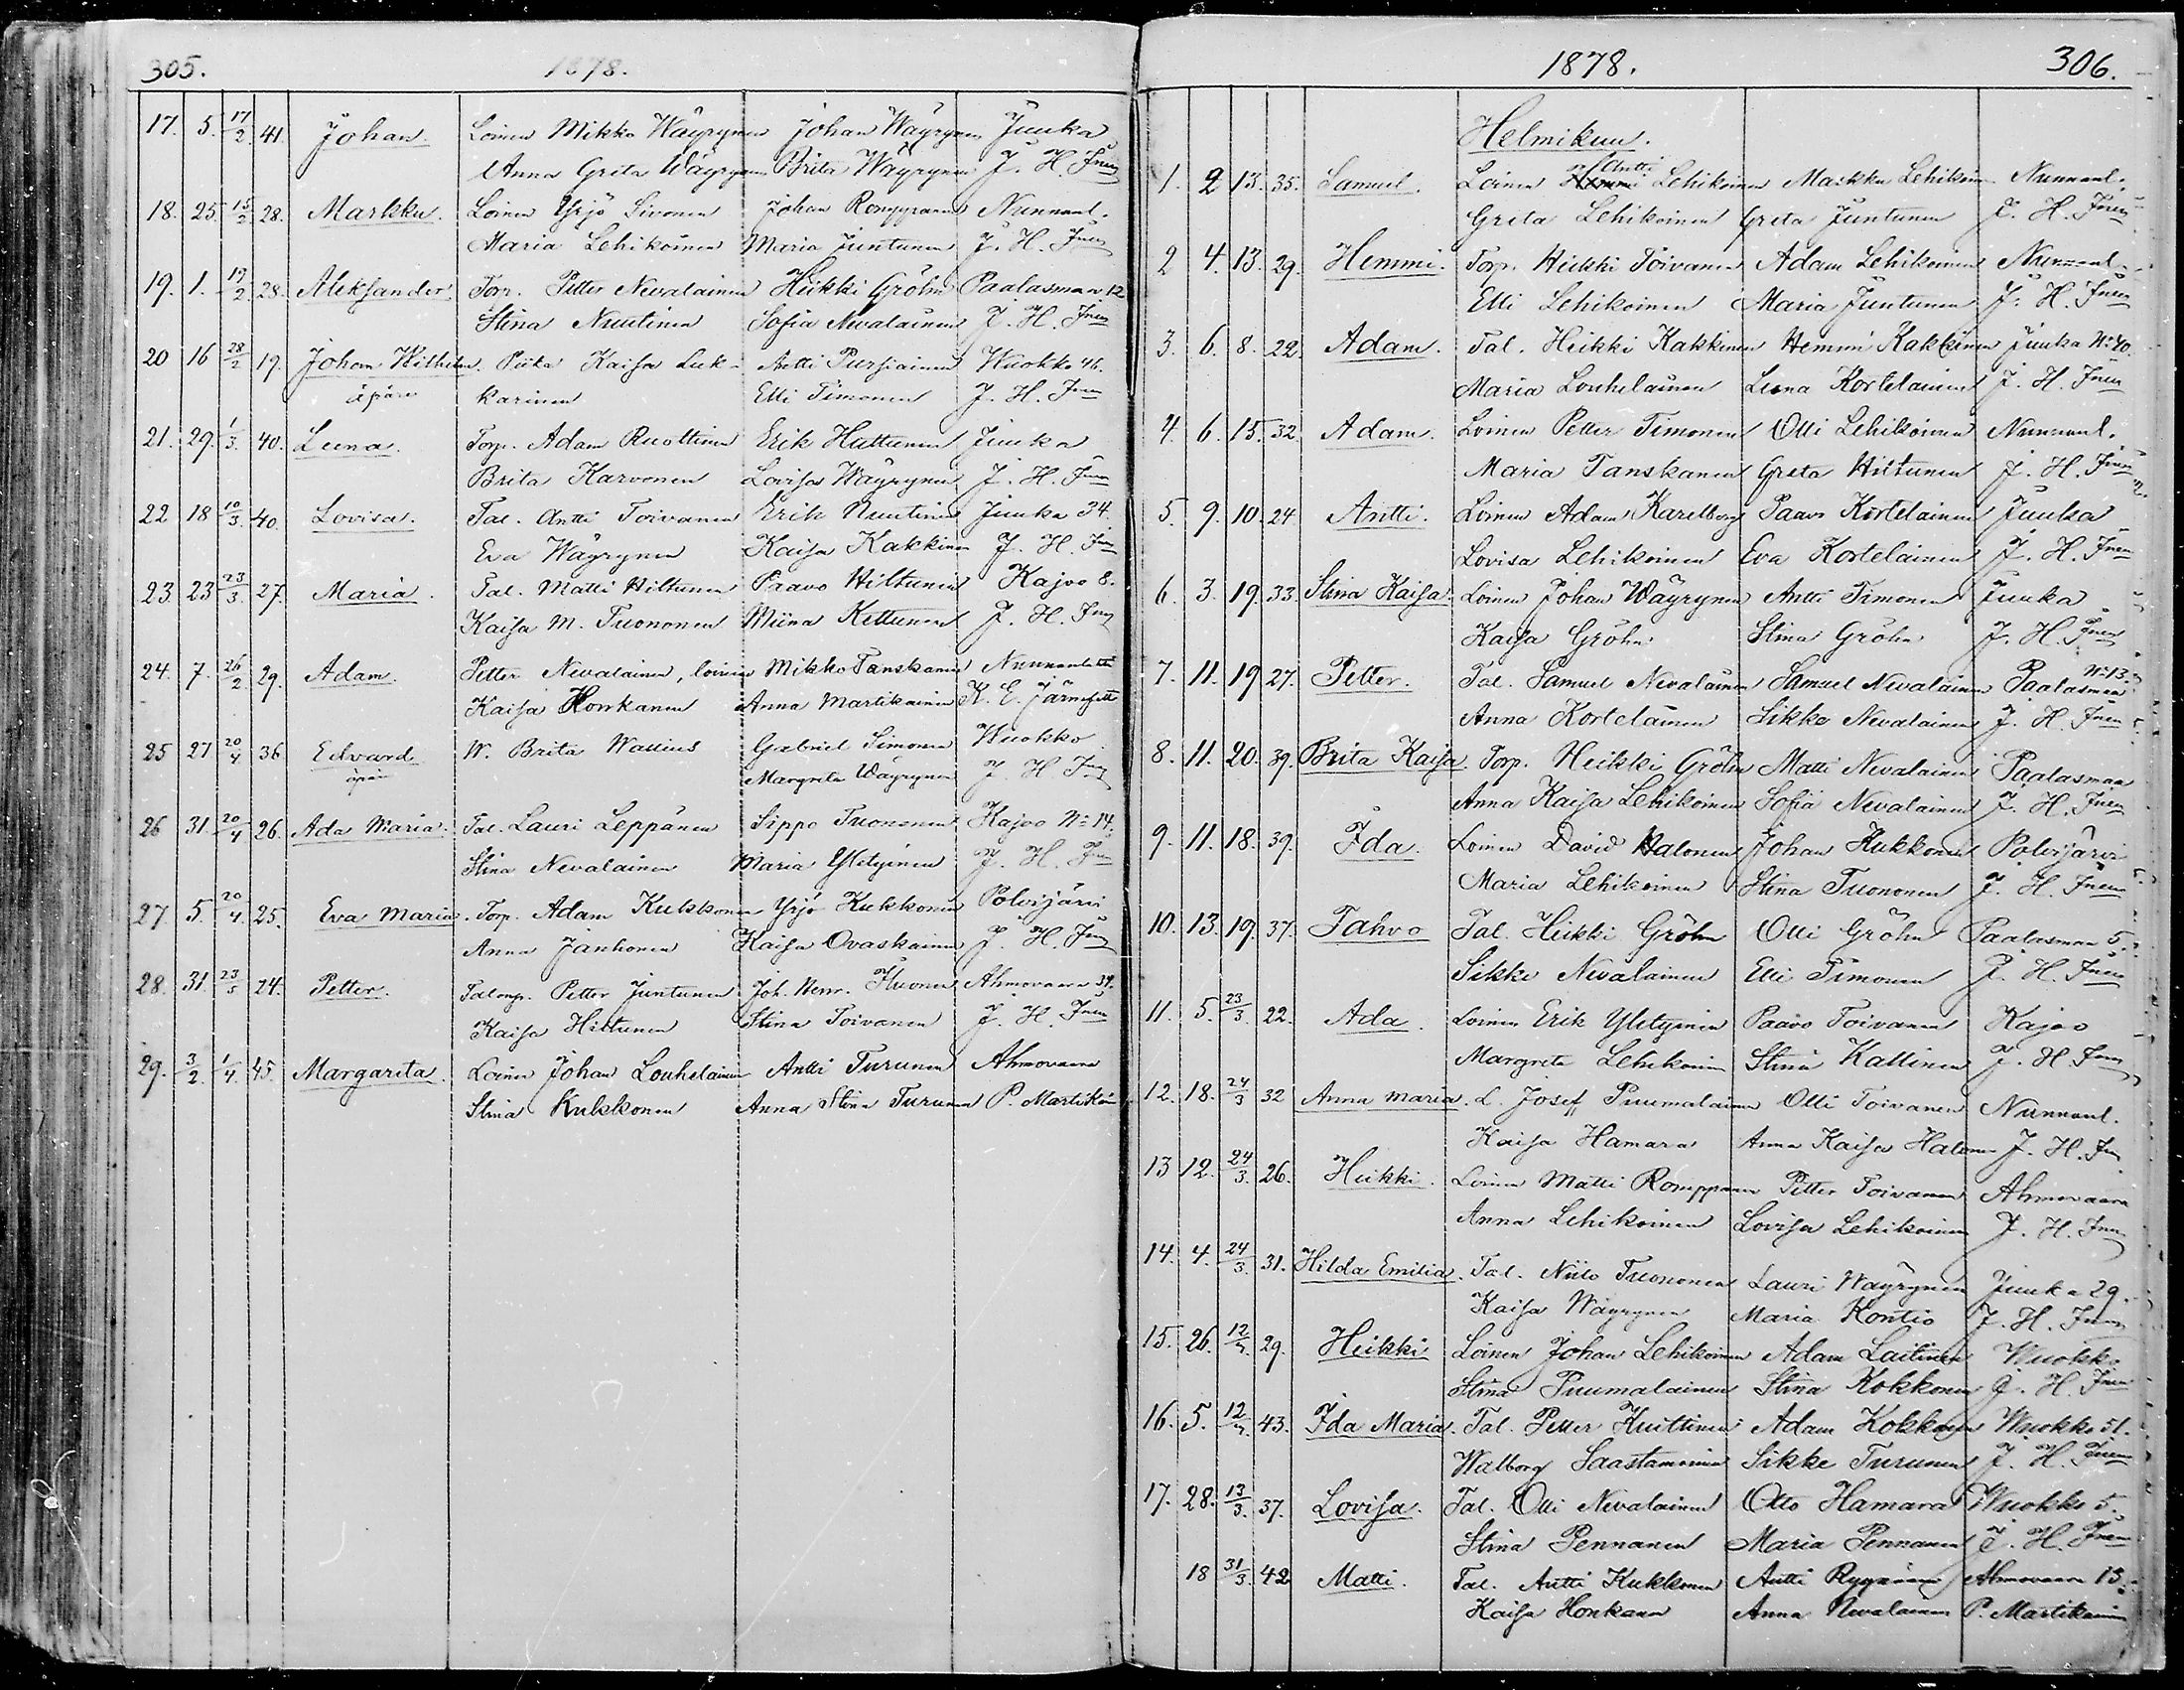 305. 1878.
17. 5. 17/2. 41. Johan. Loinen Mikko Wäyrynen Johan Wäyrynen Juuka
Anna Greta Wäyrynen Brita Wäyrynen J. H. Jnen
18. 25. 15/2. 28. Markku. Loinen Yrjö Sivonen Johan Romppanen Nunnanl.
Maria Lehikoinen Maria Juntunen J. H. Jnen
19. 1. 19/2. 28. Aleksander. Torp. Petter Nevalainen Heikki Gröhn Paalasmaa 12
Stina Nuutinen Sofia Nevalainen J. H. Jnen
20 16 28/2 19. Johan Wilhelm. Piika Kaisa Luk- Antti Pursiainen Wuokko 46.
äpäre karinen Elli Timonen J. H. Jnen
21. 29. 1/3. 40. Leena. Torp. Adam Ruottinen Erik Huttunen Juuka
Brita Karvonen Lovisa Wäyrynen J. H. Jnen
22 18 10/3. 40. Lovisa. Tal. Antti Toivanen Erik Nuutinen Juuka 34.
Eva Wäyrynen Kaisa Kakkinen J. H. Jnen
23. 23 23/3. 27. Maria. Tal. Matti Hiltunen Paavo Hiltunen Kajoo 8.
Kaisa M. Tuononen Miina Kettunen J. H. Jnen
24. 7. 26/2 29. Adam. Petter Nevalainen, loinen Mikko Tanskanen Nunnanlahti
Kaisa Honkanen Anna Martikainen K. E. Järnefelt
25 27 20/4 36 Edvard W. Brita Wallius Gabriel Simonen Wuokko
äpäre Margreta Wäyrynen J. H. Jnen
26 31. 20/4 26. Ada Maria. Tal. Lauri Leppänen Sippo Tuononen Kajoo No 14.
Stina Nevalainen Maria Yletyinen J. H. Jnen
27. 5. 20/4. 25. Eva Maria. Torp. Adam Kukkonen Yrjö Kukkonen Polvijärvi
Anna Janhonen Kaisa Ovaskainen J. H. Jnen
28. 31. 23/5 24. Petter. Talonp. Petter Juntunen Joh. Henr. Ahmovaara 34.
Kaisa Hiltunen Stina Toivanen J. H. Jnen
29. 3/2. 1/4. 45. Margarita. Loinen Johan Louhelainen Antti Turunen Ahmovaara
Stina Kukkonen Anna Stina Turunen P. Martikain
1878. 306.
Helmikuu.
Antti
1. 2 13. 35. Samuel. Loinen Lehikoinen Markku Lehikoin. Nunnanl.
Greta Lehikoinen Greta Juntunen J. H. Jnen
2 4. 13. 29. Hemmi. Torp. Heikki Toivanen Adam Lehikoinen Nunnanl.
Elli Lehikoinen Maria Juntunen J. H. Jnen
3. 6. 8. 22. Adam. Tal. Heikki Kakkinen Hemmi Kakkinen Juuka No 40.
Maria Louhelainen Leena Kortelainen J. H. Jnen
4. 6. 15. 32 Adam. Loinen Petter Timonen Olli Lehikoinen Nunnanl.
Maria Tanskanen Greta Hiltunen J. H. Jnen
5. 9. 10. 24 Antti. Loinen Adam Karelberg Paavo Kortelainen Juuka
Lovisa Lehikoinen Eva Kortelainen J. H. Jnen
6. 3. 19. 33. Stina Kaisa. Loinen Johan Wäyrynen Antti Timonen Juuka
Kaisa Gröhn Stina Gröhn J. H. Jnen
7. 11. 19 27. Petter. Tal. Samuel Nevalainen Samuel Nevalainen Paalasmaa No 13.
Anna Kortelainen Sikke Nevalainen J. H. Jnen
8. 11. 20. 39. Brita Kaisa. Torp. Heikki Gröhn Matti Nevalainen Paalasmaa
Anna Kaisa Lehikoinen Sofia Nevalainen J. H. Jnen
9. 11. 18. 39. Ida. Loinen David Halonen Johan Kukkonen Polvijärvi
Maria Lehikoinen Stina Tuononen J. H. Jnen
10. 13. 19. 37. Tahvo Tal. Heikki Gröhn Olli Gröhn Paalasmaa 5.
Sikke Nevalainen Elli Timonen J. H. Jnen
11. 5. 23/3. 22. Ada. Loinen Erik Yletyinen Paavo Toivanen Kajoo
Margreta Lehikoinen Stina Kattinen J. H. Jnen
12. 18. 24/3 32 Anna Maria. L. Josef Puumalainen Olli Toivanen Nunnanl.
Kaisa Hamara Anna Kaisa Halonen J. H. Jnen
13 12. 24/3. 26. Heikki. Loinen Matti Romppanen Petter Toivanen Ahmovaara
Anna Lehikoinen Lovisa Lehikoinen J. H. Jnen
14. 4. 24/3. 31. Hilda Emilia. Tal. Niilo Tuononen Lauri Wäyrynen Juuka 29.
Kaisa Wäyrynen Maria Kontio J. H. Jnen
15. 26. 12/4. 29. Heikki Loinen Johan Lehikoinen Adam Laitinen Wuokko
Stina Puumalainen Stina Kokkonen J. H. Jnen
16. 5. 12/4. 43. Ida Maria. Tal. Petter Kuittinen Adam Kokkonen Wuokko 51.
Walborg Saastamoinen Sikke Turunen J. H. Jnen
17. 28. 13/3. 37. Lovisa. Tal. Olli Nevalainen Otto Hamara Wuokko 5.
Stina Pennanen Maria Pennanen J. H. Jnen
18 31/3. 42 Matti. Tal. Antti Kukkonen Antti Ryynänen Ahmovaara 15.
Kaisa Honkanen Anna Nevalainen P. Martikainen